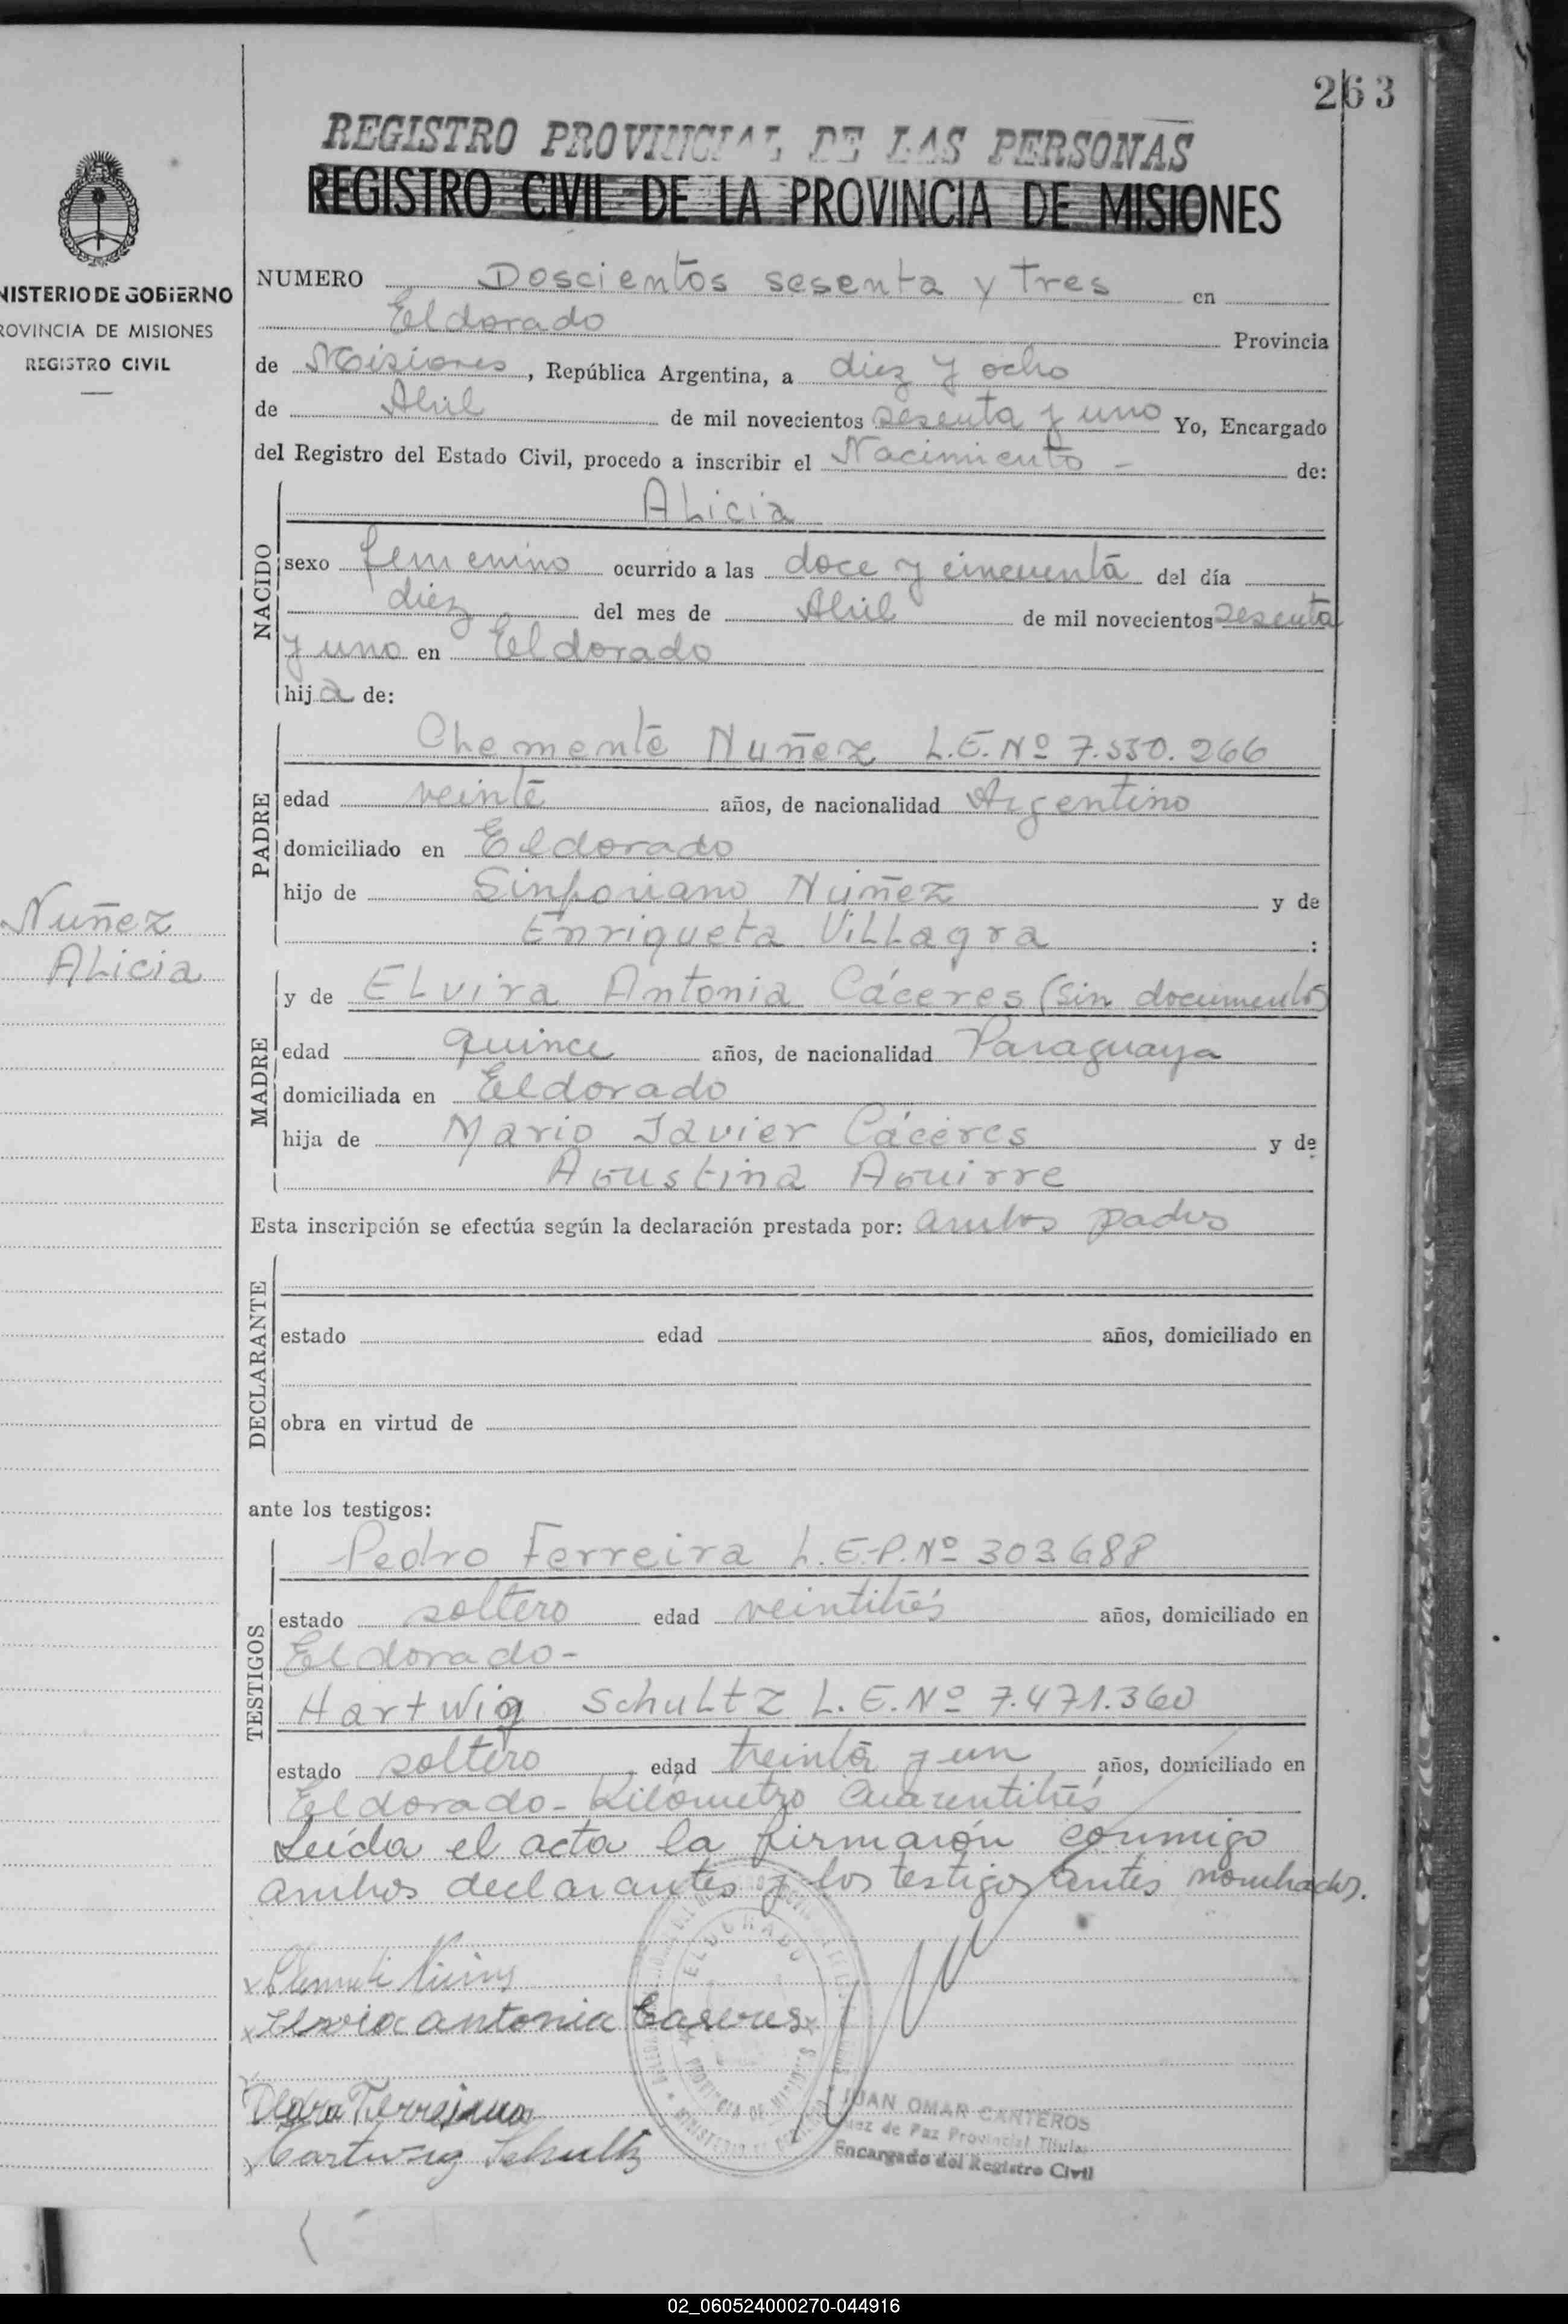 263
REGISTRO PROVINCIAL DE LAS PERSONAS
REGISTRO CIVIL DE LA PROVINCIA DE MISIONES
NISTERIO DE GOBIERNO
ROVINCIA DE MISIONES
REGISTRO CIVIL
NUMERO Doscientos sesenta y tres en
Eldorado Provincia
de Misiones, República Argentina, a diez y ocho
de Abril de mil novecientos sesenta y uno Yo, Encargado
del Registro del Estado Civil, procedo a inscribir el Nacimiento - de:
NACIDO
Alicia
sexo femenino ocurrido a las doce y cincuenta del día
diez del mes de Abril de mil novecientos sesenta
y uno en Eldorado
hija de:
PADRE
Clemente Nuñez L.E. Nº 7.530.266
edad veinte años, de nacionalidad Argentino
domiciliado en Eldorado
hijo de Sinforiano Nuñez y de
Enriqueta Villagra :
Nuñez
Alicia
MADRE
y de Elvira Antonia Cáceres (sin documentos
edad quince años, de nacionalidad Paraguaya
domiciliada en Eldorado
hija de Mario Javier Cáceres y de
Agustina Aguirre
Esta inscripción se efectúa según la declaración prestada por: ambos padres
DECLARANTE
estado edad años, domiciliado en
obra en virtud de
ante los testigos:
TESTIGOS
Pedro Ferreira L.E.P. Nº 303.688
estado soltero edad veintitrés años, domiciliado en
Eldorado-
Hartwig Schultz L.E. Nº 7.471.360
estado soltero edad treinta y un años, domiciliado en
Eldorado- Kilómetro Cuarentitrés
Leída el acta la firmarón conmigo
ambos declarantes y los testigos antes nombrados.
ELDORADO
PROVINCIA DE MISIONES
x Clemente
x Elvira antonia Caseres
Hartwig Schultz
JUAN OMAR CANTEROS
Juez de Paz Provincial Titular
Encargado del Registro Civil
02_060524000270-044916